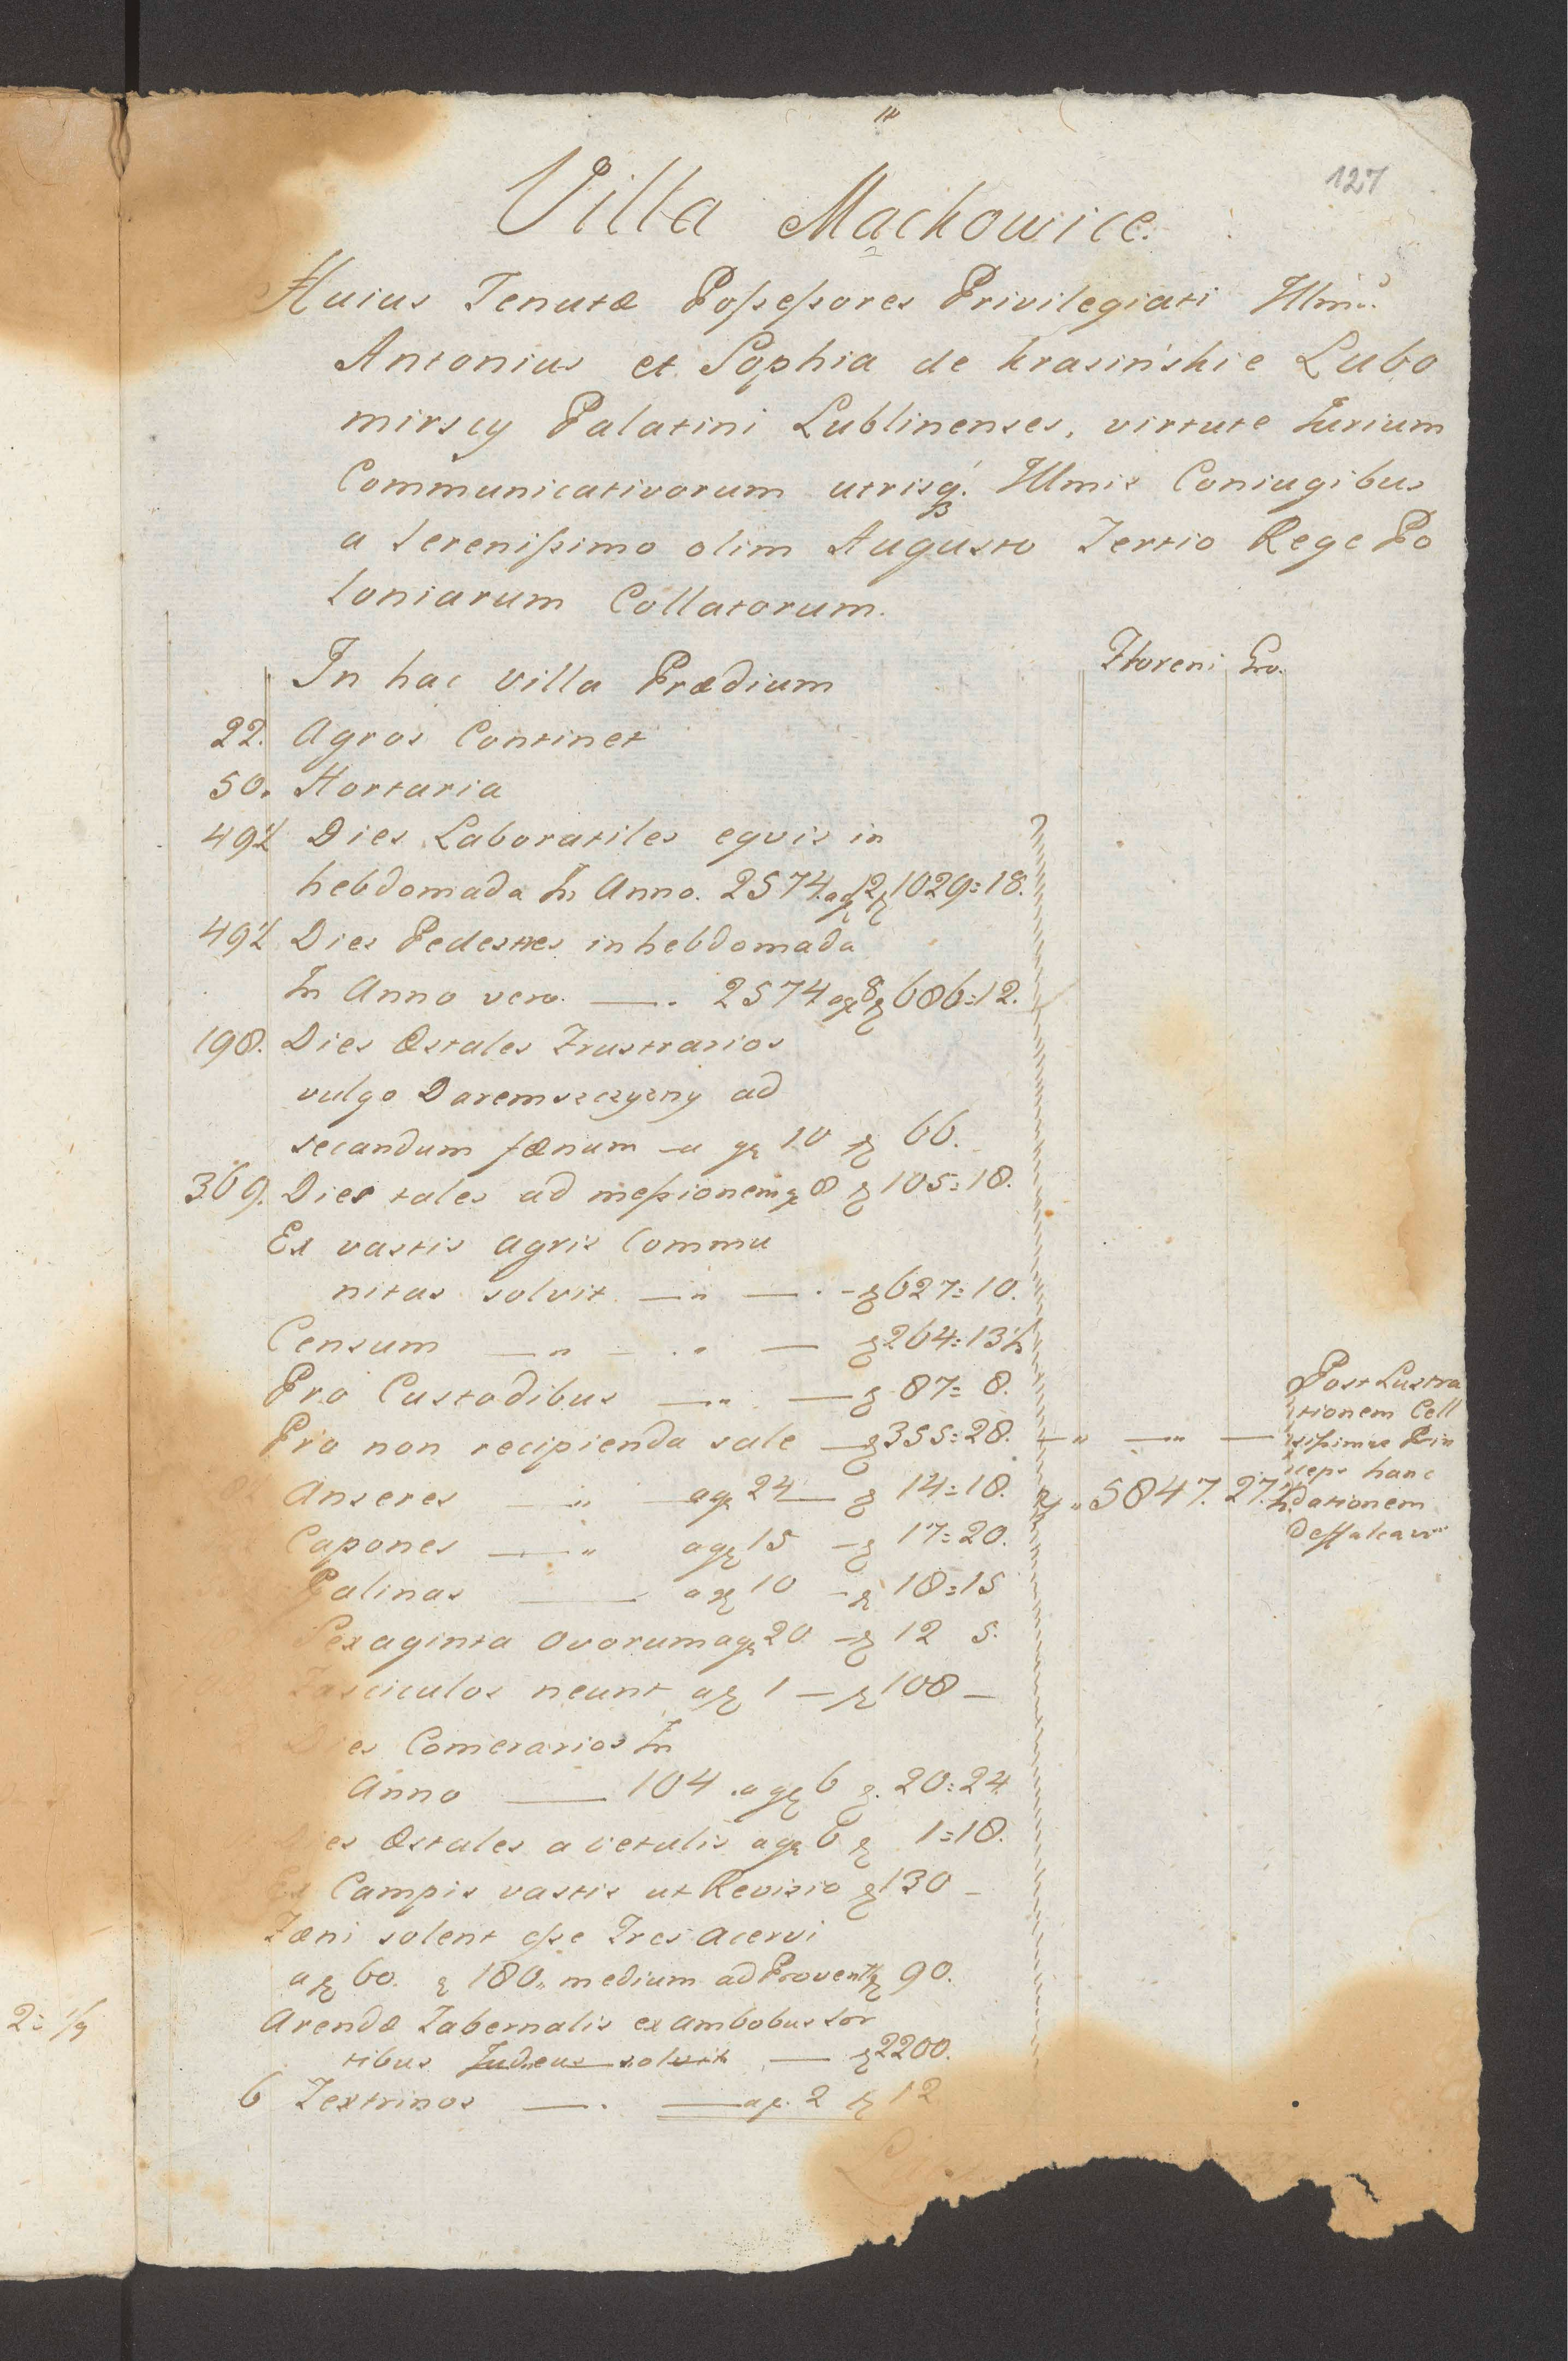 127
Villa Mackowice.
Huius Tenutæ Possessores Privilegiati Illmi
Antonius et Sophia de Krasińskie Lubo
mirscy Palatini Lublinenses, virtute Iurium
Communicativorum utrisq́. Illmis Coniugibus
a Serenissimo olim Augusto Tertio Rege Po
loniarum Collatorum.
Floreni Gro.
In hac villa Prædium
22. Agros Continet
50. Hortaria
49½ Dies Laboratiles equis in
hebdomada In Anno. 2574. a gr 12 f 1029=18.
49½ Dies Pedestres in hebdomada
In Anno vero. —. 2574 a gr 8 f 686=12.
198. Dies Æstales Frustrarios
vulgo Daremszczyzny ad
secandum fænum — a gr 10 f 66.
369. Dies tales ad messionem gr 8 f 105=18.
Ex vastis agris Commu
nitas solvit — " — . - f 627=10.
Censum — " - . . — f 264=13½
Pro Custodibus — " — f 87=8.
Pro non recipienda sale — f 355=28. — " — " —
Post Lustra
tionem Cell
sissimus Prin
ceps hanc
dationem
deffalcavit
Anseres — " — a gr 24 — f 14=18. f " 5847. 27.½
Capones — " a gr 15 — f 17=20.
Galinas — a gr 10 - f 18=15
Sexaginta Ovorum a gr 20 — f 12 5.
Fasciculos neunt a gr 1 — f 108 —
Dies Comerarios In
Anno — 104 . a gr 6 f. 20=24
es Æstales a vetulis a gr 6 f 1=18.
Ex Campis vastis ut Revisio f 130 —
Fæni solent esse Tres acervi
a f 60. f 180,, medium ad Provent f 90.
Arendæ Tabernalis ex ambobus sor
tibus Judæus solvit — f 2200.
6 Textrinos —. — a f. 2 f 12
2= 1/9